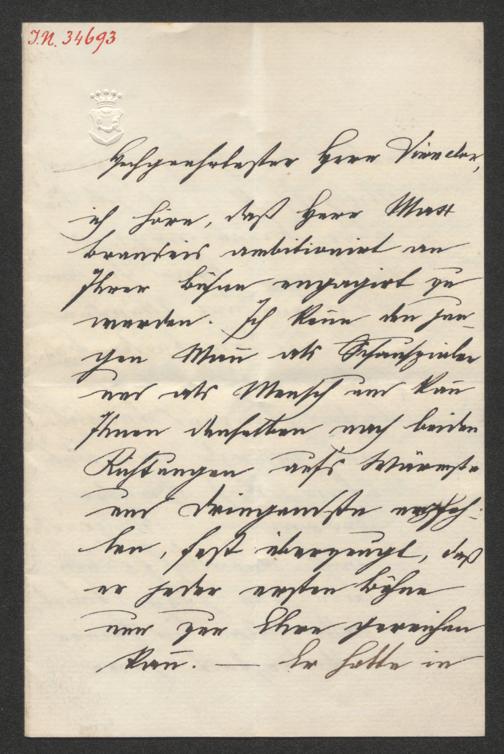 I.N. 34693
Hochgeehrtester Herr Director,
ich höre, daß Herr Max
Brandeis ambitionirt an
Ihrer Bühne engagirt zu
werden. Ich kenne den jun-
gen Mann als Schauspieler
und als Mensch und kann
Ihnen denselben nach beiden
Richtungen aufs Wärmste
und Dringendste empfeh-
len, fest überzeugt, daß
er jeder ersten Bühne
nur zur Ehre gereichen
kann. — Er hatte in